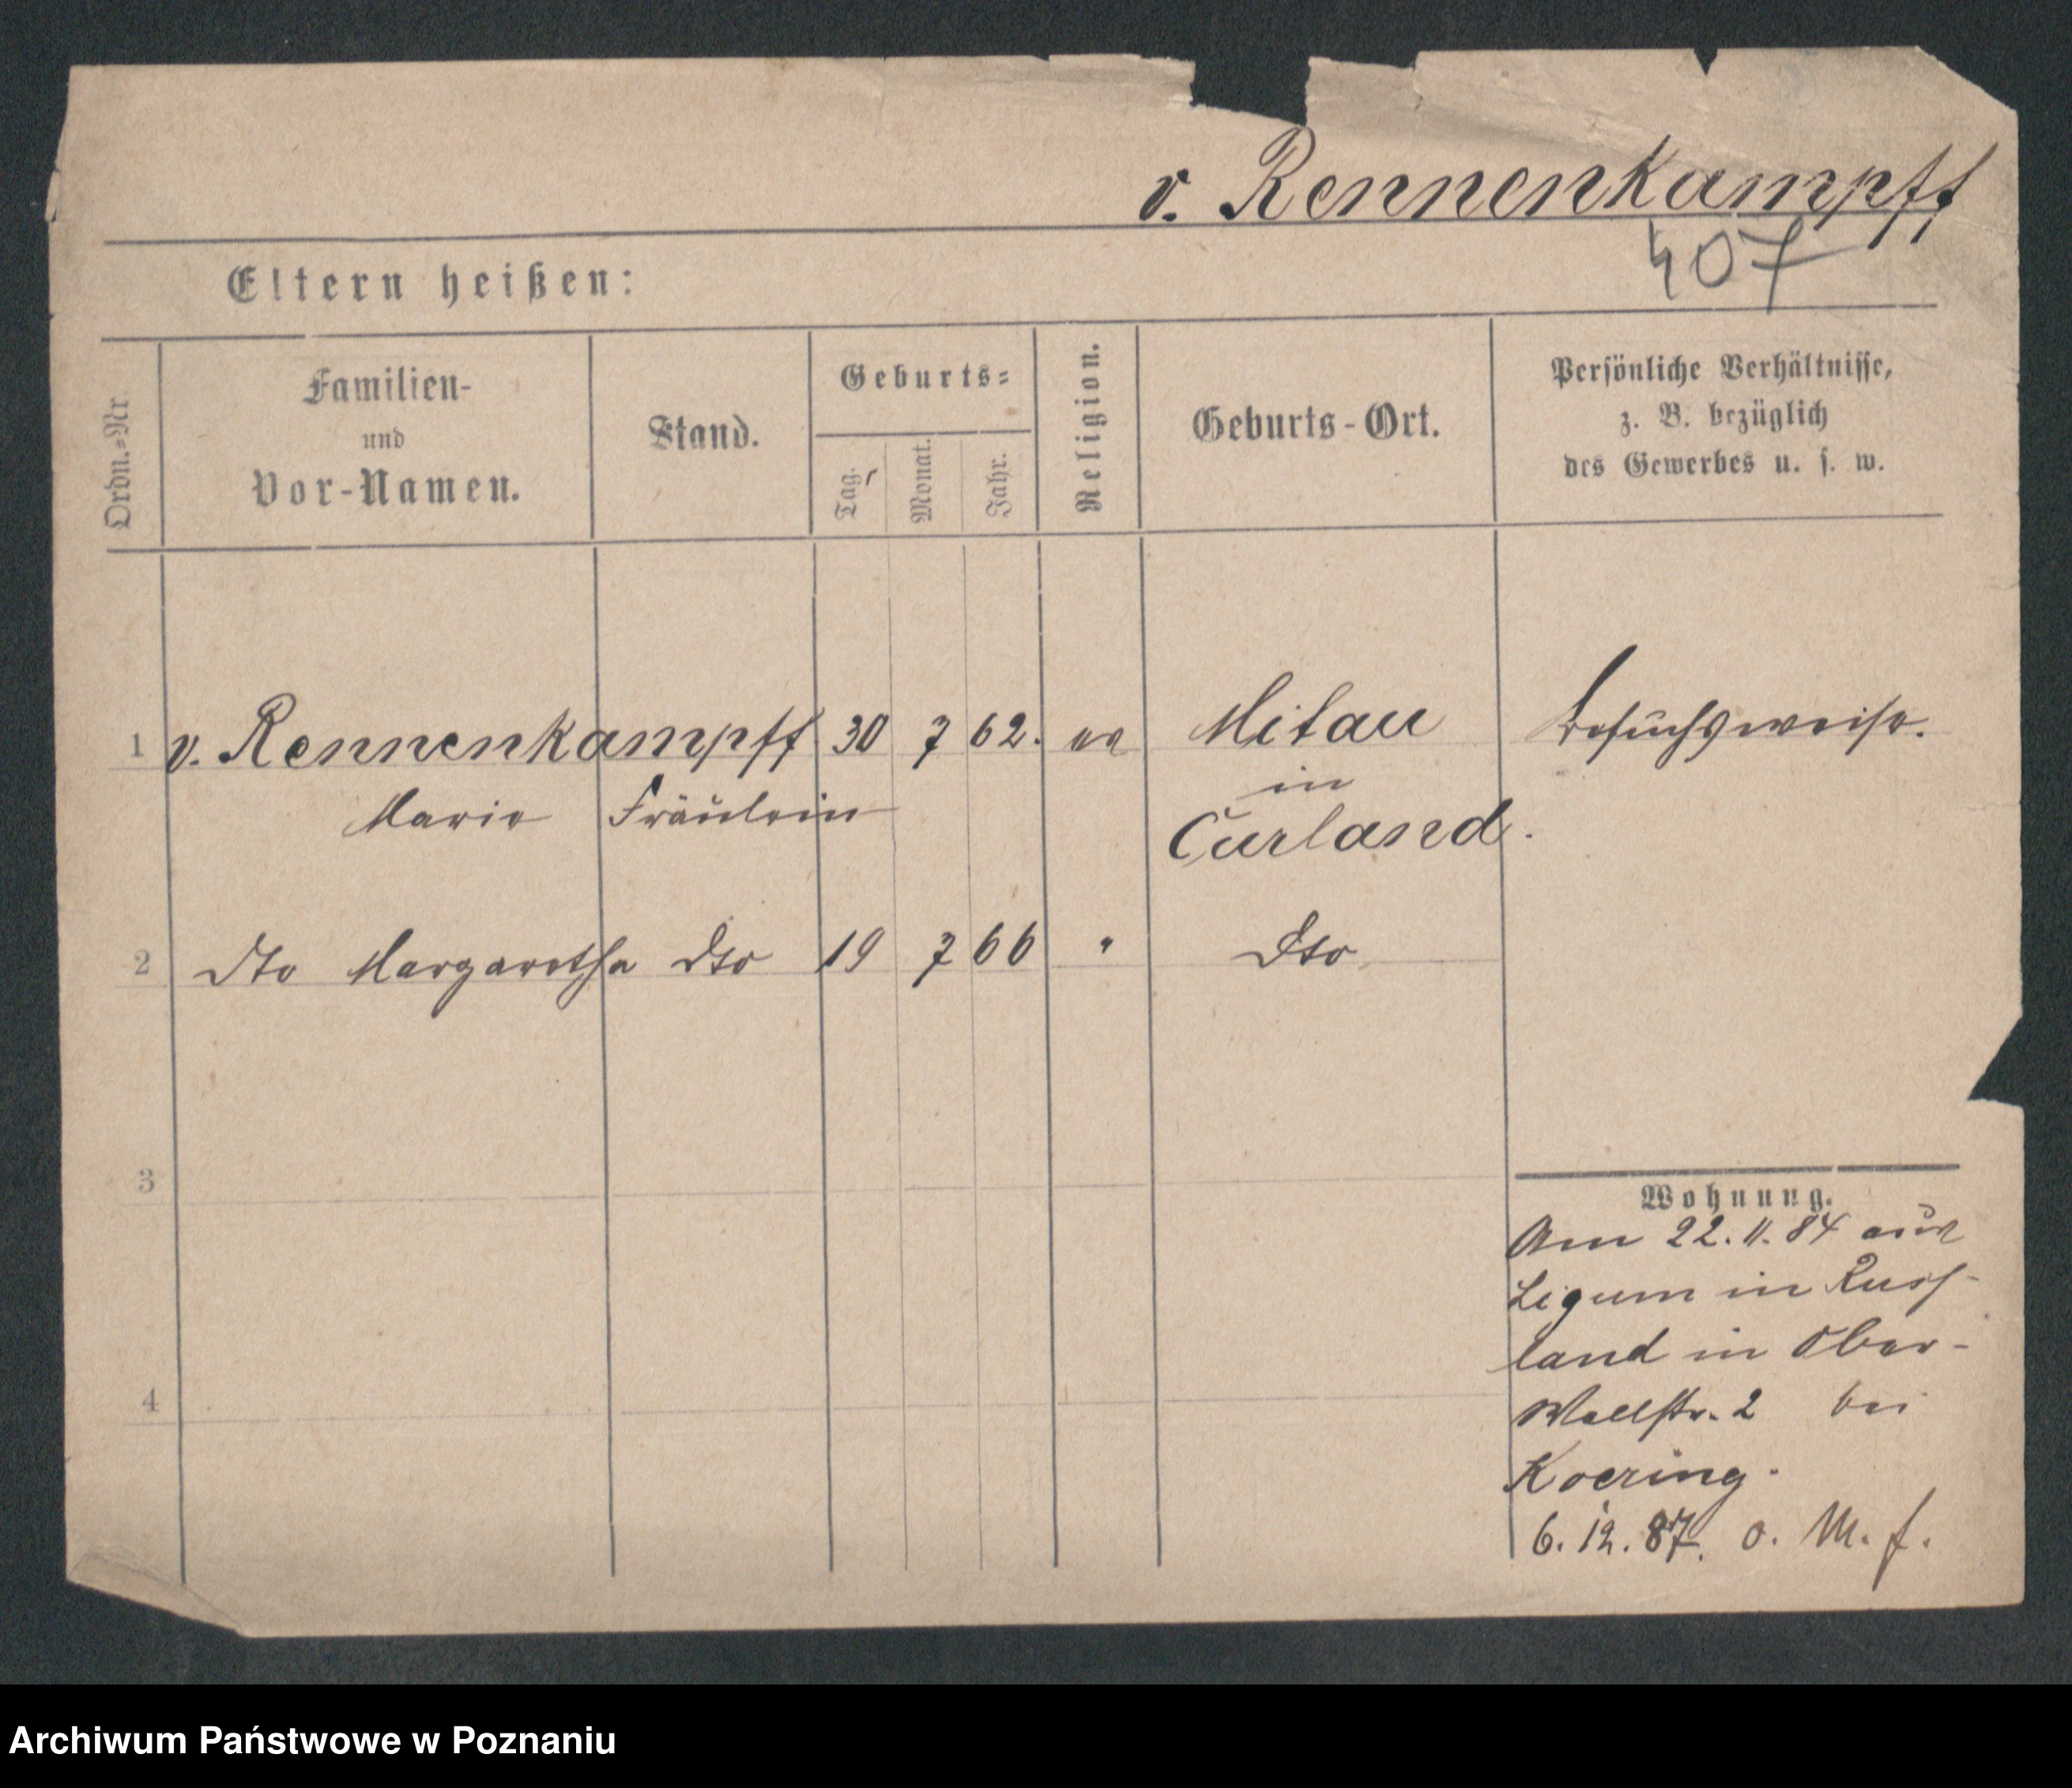 v. Rennenkampff
407
Eltern heißen:
Ordn.=Nr.
Familien-
und
Vor-Namen.
Stand.
Geburts=
Tag.
Monat.
Jahr.
Religion.
Geburts-Ort.
Persönliche Verhältnisse,
z. B. bezüglich
des Gewerbes u. s. w.
1 v. Rennenkampff 30 7 62. ev Mitau besuchsweise.
in
Marie Fräulein Curland.
2 dto Margaretha dto 19 7 66 " dto
3
4
Wohnung.
Am 22.11.84 aus
Ligum in Russ-
land in Ober-
Wallstr. 2 bei
Koering.
6.12.87. o. M. f.
Archiwum Państwowe w Poznaniu